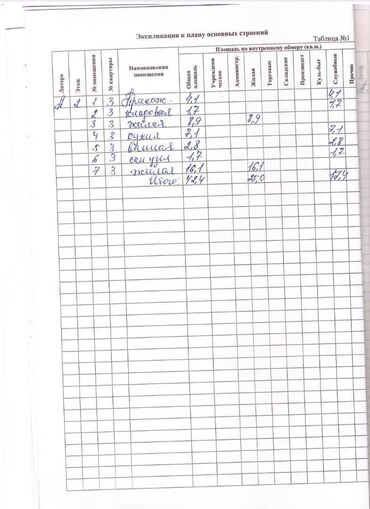 Экспликация к плану основных строений
Таблица №1
Литера Этаж № помещения № квартиры Наименования помещения Площадь по внутреннему обмеру (кв.м.)
Общая площадь Учрежденческие Администр. Жилая Торговые Складские Производст Куль-быт Служебные Прочие
А 2 1 3 Прихож. 4,1 4,1
2 3 кладовая 1,7 1,7
3 3 жилая 8,9 8,9
4 3 кухня 7,1 7,1
5 3 ванная 2,8 2,8
6 3 сан узел 1,7 1,7
7 3 жилая 16,1 16,1
Итого: 42,4 25,0 17,4